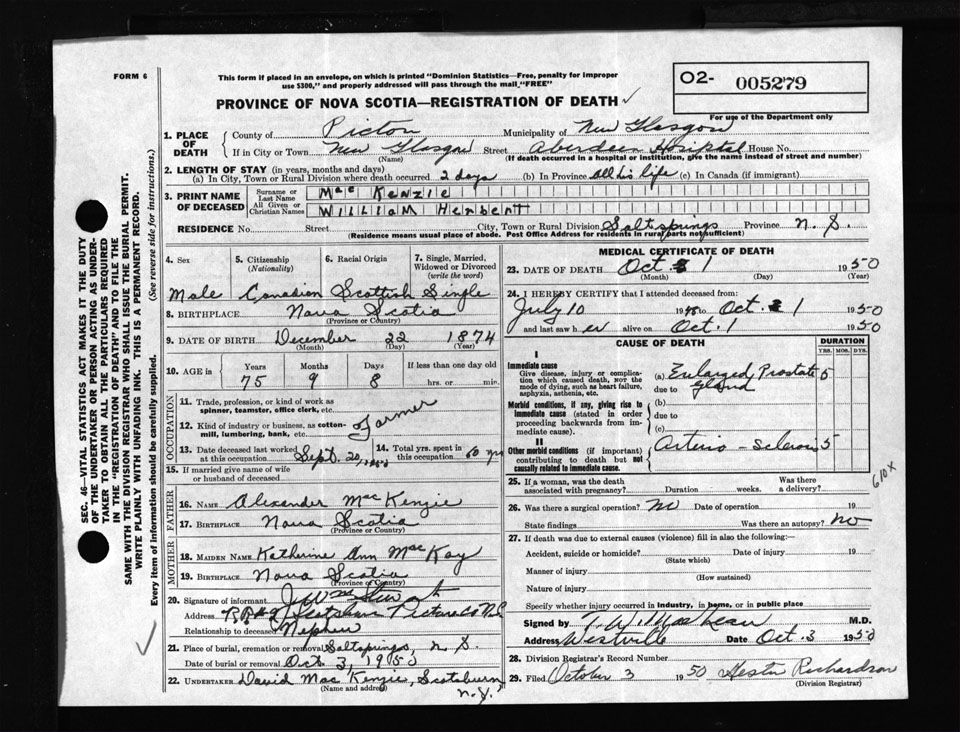 FORM 6
This form if placed in an envelope, on which is printed "Dominion Statistics—Free, penalty for improper
use $300," and properly addressed will pass through the mail "FREE"
O2- 005279
For use of the Department only
PROVINCE OF NOVA SCOTIA—REGISTRATION OF DEATH ✓
1. PLACE OF DEATH
County of Pictou Municipality of New Glasgow
If in City or Town New Glasgow Street Aberdeen Hospital House No.
(Name) (If death occurred in a hospital or institution, give the name instead of street and number)
2. LENGTH OF STAY (in years, months and days)
(a) In City, Town or Rural Division where death occurred 2 days (b) In Province all his life (c) In Canada (if immigrant)
3. PRINT NAME OF DECEASED
Surname or Last Name MacKenzie
All Given or Christian Names William Herbert
RESIDENCE No. Street City, Town or Rural Division Saltsprings Province N.S.
(Residence means usual place of abode. Post Office Address for residents in rural parts not sufficient)
4. Sex 5. Citizenship (Nationality) 6. Racial Origin 7. Single, Married, Widowed or Divorced (write the word)
Male Canadian Scottish Single
8. BIRTHPLACE Nova Scotia
(Province or Country)
9. DATE OF BIRTH December 22 1874
(Month) (Day) (Year)
10. AGE in Years Months Days If less than one day old
75 9 8 hrs. or min.
OCCUPATION
11. Trade, profession, or kind of work as spinner, teamster, office clerk, etc.
12. Kind of industry or business, as cotton-mill, lumbering, bank, etc. Farmer
13. Date deceased last worked at this occupation Sept. 20, 14. Total yrs. spent in this occupation 60 yrs
15. If married give name of wife or husband of deceased
FATHER
16. NAME Alexander MacKenzie
17. BIRTHPLACE Nova Scotia
(Province or Country)
MOTHER
18. MAIDEN NAME Katherine Ann MacKay
19. BIRTHPLACE Nova Scotia
(Province or Country)
20. Signature of informant
Address R.R.#2 Scotsburn Pictou Co N.S.
Relationship to deceased Nephew
21. Place of burial, cremation or removal Saltsprings, N.S.
Date of burial or removal Oct 3, 1950
22. UNDERTAKER David MacKenzie, Scotsburn
(Name and address) N.S.
MEDICAL CERTIFICATE OF DEATH
23. DATE OF DEATH Oct. 1 1950
(Month) (Day)
24. I HEREBY CERTIFY that I attended deceased from:
July 10 1948 to Oct. 1 1950
and last saw h er alive on Oct. 1 1950
CAUSE OF DEATH DURATION
YRS. MOS. DYS.
I
Immediate cause
Give disease, injury or complication which caused death, nor the mode of dying, such as heart failure, asphyxia, asthenia, etc.
(a) Enlarged Prostate 5
due to Gland
Morbid conditions, if any, giving rise to immediate cause (stated in order proceeding backwards from immediate cause).
(b)
due to
(c)
II
Other morbid conditions (if important) contributing to death but not causally related to immediate cause.
Arterio-sclerosis 5
610X
25. If a woman, was the death associated with pregnancy? Duration weeks. Was there a delivery?
26. Was there a surgical operation? No Date of operation 19
State findings Was there an autopsy? No
27. If death was due to external causes (violence) fill in also the following:
Accident, suicide or homicide? Date of injury 19
(State which)
Manner of injury
(How sustained)
Nature of injury
Specify whether injury occurred in industry, in home, or in public place
Signed by T. W. MacLean M.D.
Address Westville Date Oct. 3 1950
28. Division Registrar's Record Number
29. Filed October 3 1950 Hester Richardson
(Division Registrar)
SEC. 46—VITAL STATISTICS ACT MAKES IT THE DUTY
OF THE UNDERTAKER OR PERSON ACTING AS UNDER-
TAKER TO OBTAIN ALL THE PARTICULARS REQUIRED
IN THE "REGISTRATION OF DEATH" AND TO FILE THE
SAME WITH THE DIVISION REGISTRAR WHO SHALL ISSUE THE BURIAL PERMIT.
WRITE PLAINLY WITH UNFADING INK. THIS IS A PERMANENT RECORD.
Every item of information should be carefully supplied. (See reverse side for instructions.)